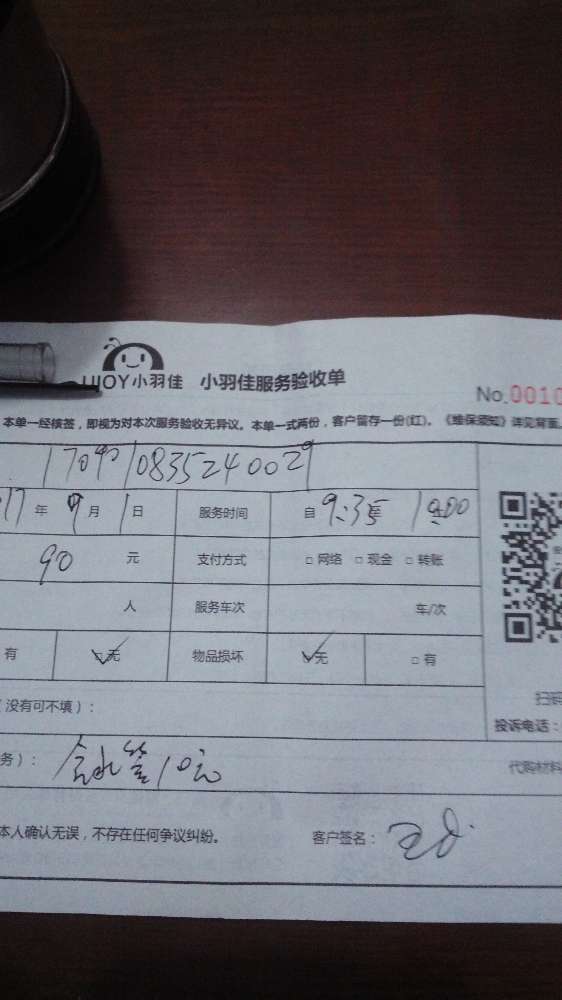 UJOY小羽佳 小羽佳服务验收单
No.0010
本单一经核签，即视为对本次服务验收无异议。本单一式两份，客户留存一份(红)。《维保须知》详见背面
17年9月1日 服务时间 自9:35
90元 支付方式 □网络 □现金 □转账
人 服务车次 车/次
有 □无 物品损坏 □无 □有
（没有可不填）：
扫码
投诉电话：
务）： 10元
代购材料
本人确认无误，不存在任何争议纠纷。 客户签名：